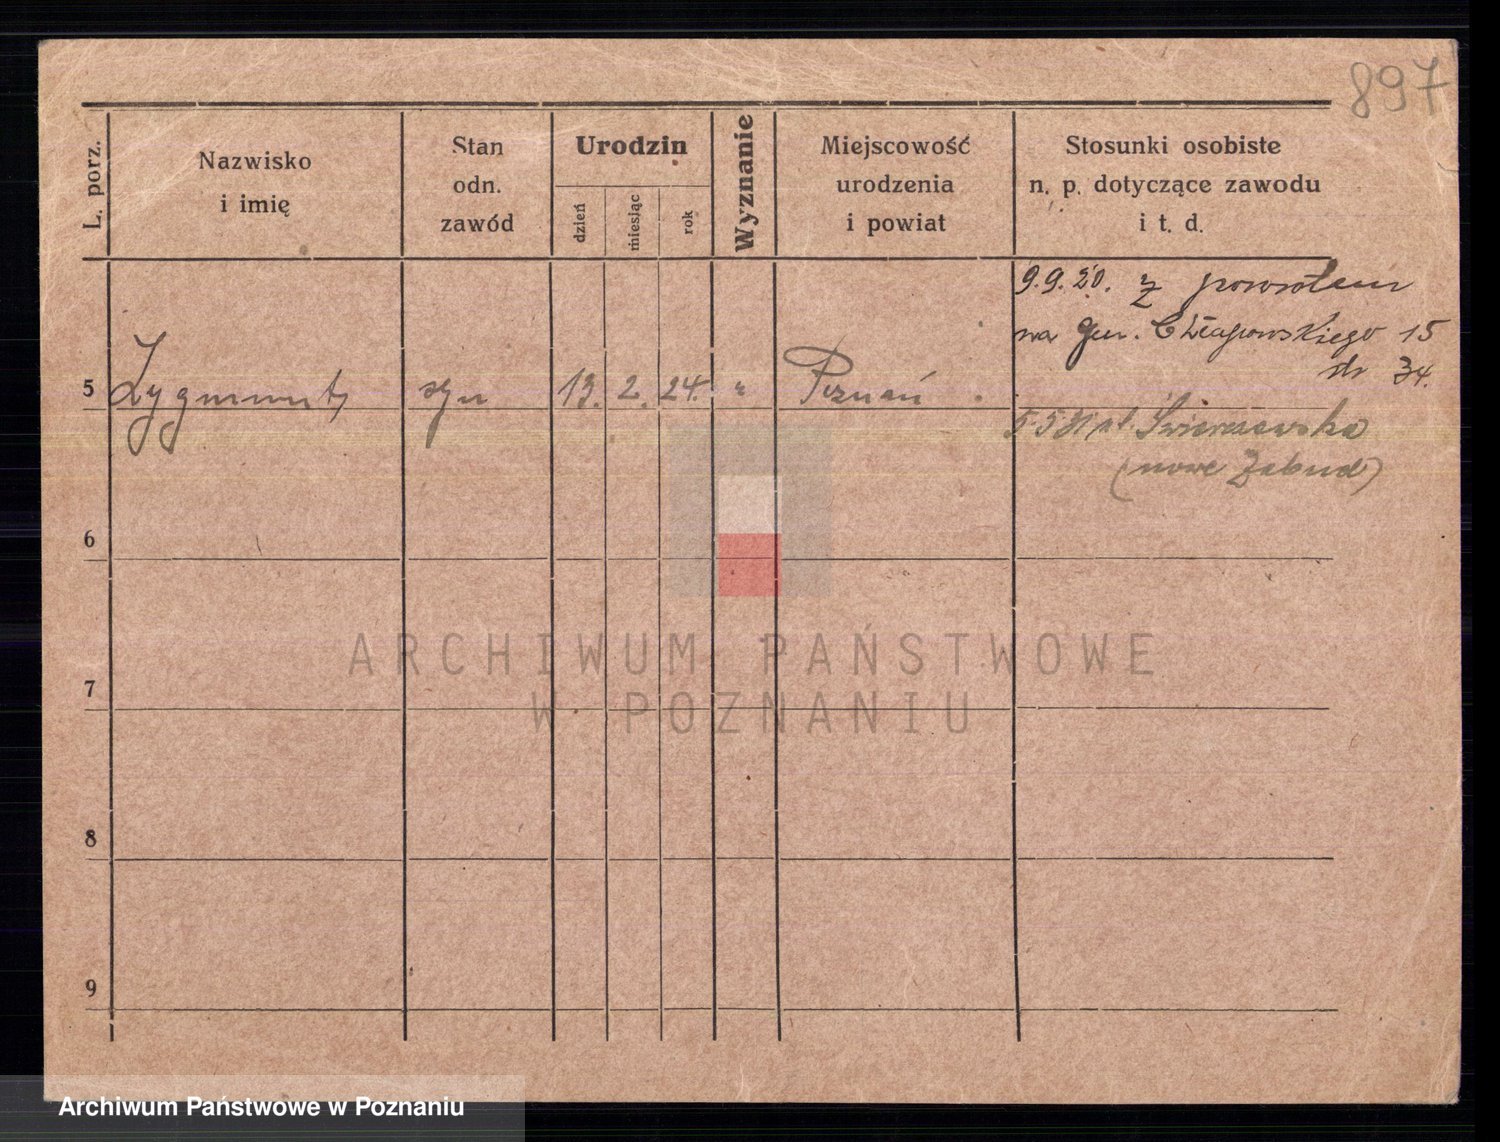 897
L. porz.
Nazwisko
i imię
Stan
odn.
zawód
Urodzin
dzień
miesiąc
rok
Wyznanie
Miejscowość
urodzenia
i powiat
Stosunki osobiste
n. p. dotyczące zawodu
i t. d.
9.9.20. Z powrotem
na Gen. Chłapowskiego 15
34.
5 Zygmunt syn 13. 2. 24. " Poznań
Świerczewska
(nowe Zabud)
6
7
8
9
ARCHIWUM PAŃSTWOWE
W POZNANIU
Archiwum Państwowe w Poznaniu